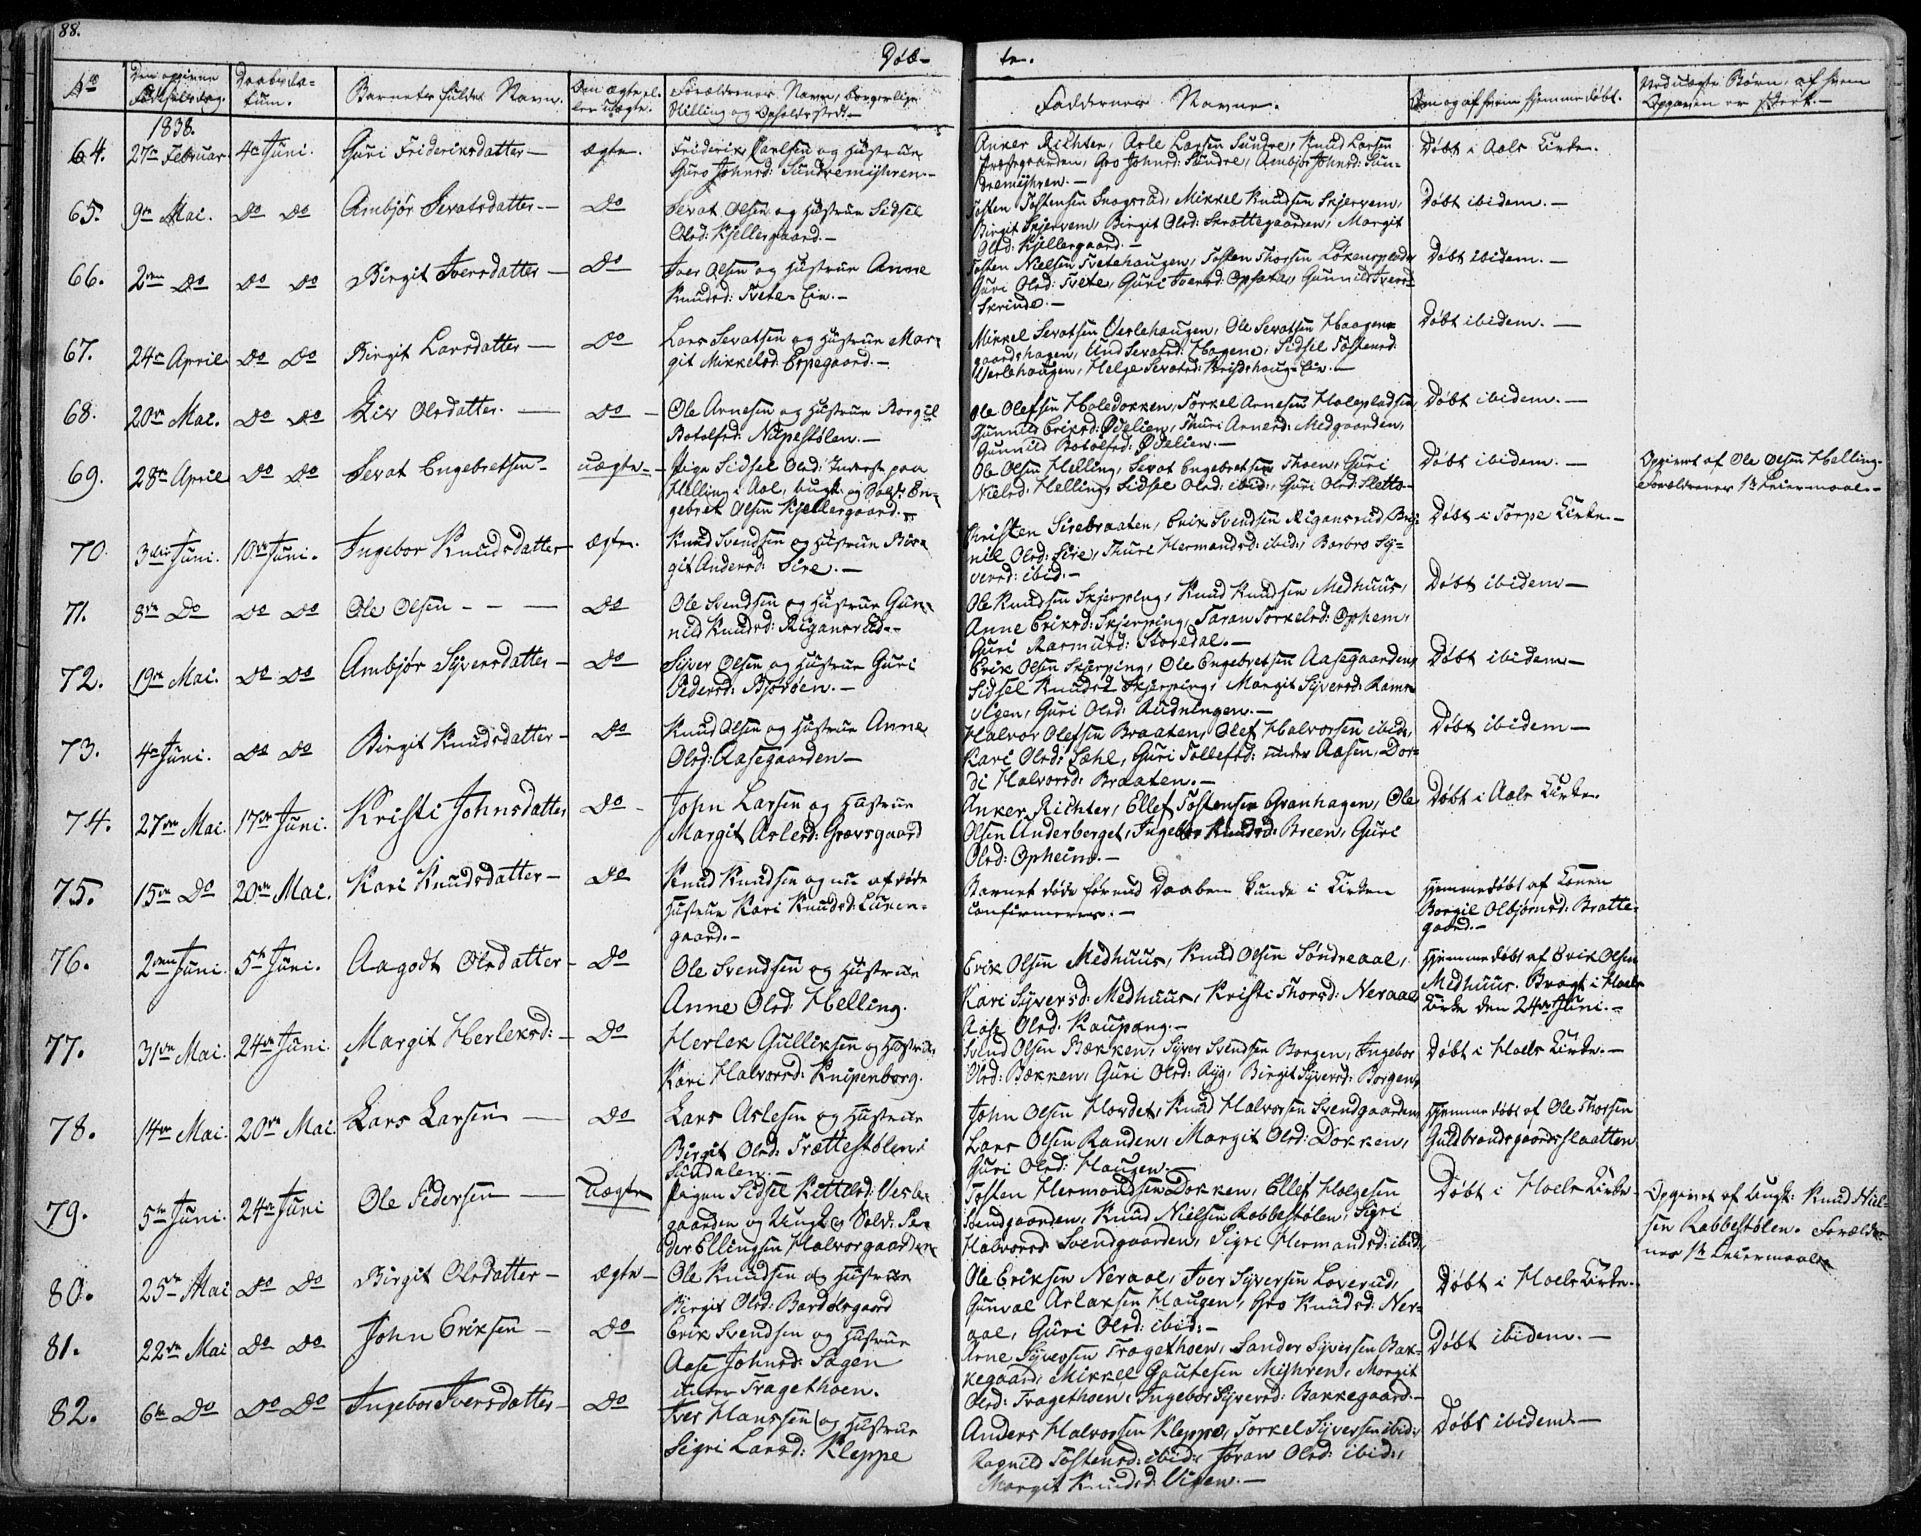 88.
Døb-
te.
No
Den opgivne
Fødselsdag.
Daabsda-
tum.
Barnets fulde Navn.
Om ægte el-
ler uægte.
Forældrenes Navn, borgerlige
Stilling og Opholdssted.
Faddernes Navne.
Om og af hvem hjemmedøbt.
Ved uægte Børn, af hvem
Opgaven er skeet.
1838.
64. 27de Februar. 4de Juni. Guri Frideriksdatter ægte. Friderik Carlsen og Hustrue
Guro Johnsd: Sundremyhren.
Anker Richter, Asle Larsen Sundre, Knud Larsen
Præstgaarden, Gro Johnsd: Sundre, Ambjør Johnsd: Sun-
dremyhren.
Døbt i Aals Kirke.
65. 9de Mai. Do Do Ambjør Sevatsdatter Do Sevat Olsen og Hustrue Sidsel
Olsd: Kjellergaard.
Tosten Tostensen Snogsrud, Mikkel Knudsen Skjervem,
Birgit Skjervem, Birgit Olsd: Skrattegaarden, Margit
Olsd: Kjellergaard.
Døbt ibidem.
66. 2den Do Do Do Birgit Iversdatter Do Iver Olsen og Hustrue Anne
Knudsd: Tvete-Eie.
Tosten Nielsen Tvetehaugen, Tosten Thorsen
Guri Olsd: Tvete, Guri Iversd: Opsata, Gunnild Iversd:
Skrinde.
Døbt ibidem.
67. 24de April Do Do Birgit Larsdatter Do Lars Sevatsen og Hustrue Mar-
git Mikkelsd: Espegaard.
Mikkel Sevatsen Verlehaugen, Ole Sevatsen Haagens-
gaardshagen, Und Sevatsd: Hagene, Sidsel Tostensd:
Verlehaugen, Helge Sevatsd:
Døbt ibidem.
68. 20de Mai. Do Do Liv Olsdatter. Do Ole Arnesen og Hustrue Borgil
Botolfsd: Nupestølen.
Ole Olefsen Holedokken, Torkel Arnesen Holepladsen,
Gunnild Eriksd: Ødelien, Thuri Arnesd: Medgaarden,
Gunnild Botolfsd: Ødelien.
Døbt ibidem.
69. 28de April Do Do Sevat Engebretsen uægte Pige Sidsel Olsd: Inderst paa
Helling i Aal, Ungk: og Sold: En-
gebret Olsen Kjellergaard.
Ole Olsen Helling, Sevat Engebretsen Thoen, Guri
Nielsd: Helling, Sidsel Olsd: ibid:, Guri Olsd: Sletto.
Døbt ibidem.
Opgivet af Ole Olsen Helling.
Forældrenes 1ste Leiermaal.
70. 3die Juni. 10de Juni. Ingebor Knudsdatter ægte. Knud Svendsen og Hustrue Bir-
git Andersd: Sire.
Christen Sirebraaten, Erik Svendsen Rigansrud, Bor-
nil Olsd: Sire, Thuri Hermandsd: ibid:, Barbro Sy-
versd: ibid.
Døbt i Torpe Kirke.
71. 8de Do Do Do Ole Olsen Do Ole Svendsen og Hustrue Gun-
nild Knudsd: Rigansrud.
Ole Knudsen Skjerping, Knud Knudsen Medhuus,
Anne Eriksd: Skjerping, Taran Torkelsd: Ophem,
Guri Rasmusd: Storedal.
Døbt ibidem
72. 19de Mai. Do Do Ambjør Syversdatter Do Syver Olsen og Hustrue Guri
Pedersd: Bjorøen.
Erik Olsen Skjerping, Ole Engebretsen Aasegaarden,
Sidsel Knudsd Skjerping, Margit Syversd: Rams-
vigen, Guri Olsd: Rudningen.
Døbt ibidem
73. 4de Juni. Do Do Birgit Knudsdatter Do Knud Olsen og Hustrue Anne
Olsd: Aasegaarden
Halvor Olefsen Braaten, Olef Halvorsen ibid:,
Kari Olsd: Sæhl, Guri Tollefsd: under Aasen, Dor-
di Halvorsd: Braaten.
Døbt ibidem
74. 27de Mai. 17de Juni. Kristi Johnsdatter Do John Larsen og Hustrue
Margit Aslesd: Grøvsgaard
Anker Richter, Ellef Tostensen Granhagen, Ole
Olsen Underberget, Ingebor Knudsd: Breen, Guri
Olsd: Opheim.
Døbt i Aals Kirke.
75. 15de Do 20de Mai. Kari Knudsdatter Do Knud Knudsen og nu afdøde
Hustrue Kari Knudsd:
gaard.
Barnet døde førend Daaben kunde i Kirken
confirmeres.
Hjemmedøbt af Konen
Borgil Olbjørnsd: Bratte-
gaard.
76. 2den Juni. 5te Juni. Aagodt Olsdatter Do Ole Svendsen og Hustrue
Anne Olsd: Helling.
Erik Olsen Medhuus, Knud Olsen Søndreaal,
Kari Syversd: Medhuus, Kristi Thorsd: Neraal,
Aase Olsd: Kaupang.
Hjemmedøbt af Erik Olsen
Medhuus. Bragt i Hoels
Kirke den 24de Juni.
77. 31te Mai. 24de Juni. Margit Herleksd: Do Herlek Gulliksen og Hustrue
Kari Halvorsd: Knipenborg.
Svend Olsen Bækken, Syver Svendsen Borgen, Ingebor
Olsd: Bækken, Guri Olsd: Ryg, Birgit Syversd: Borgen.
Døbt i Hoels Kirke.
78. 14de Mai. 20de Mai Lars Larsen Do Lars Aslesen og Hustrue
Birgit Olsd: Trættestølen i
Sundalen.
John Olsen Hovdet, Knud Halvorsen Svendgaarden,
Lars Olsen Randen, Margit Olsd: Dokken,
Guri Olsd: Haugen.
Hjemmedøbt af Ole Thorsen
Guldbrandsgaardsslaatten
79. 5te Juni. 24de Juni Ole Pedersen Uægte Pigen Sidsel Kittilsd: Vesle-
gaarden og Ungk: og Sold: Pe-
der Ellingsen Halvorgaarden.
Tosten Hermandsen Dokken, Ellef Holgesen
Svendgaarden, Knud Nielsen Rabbestølen, Sigri
Halvorsd Svendgaarden, Sigri Hermandsd: ibid:
Døbt i Hoels Kirke.
Opgivet af Ungk: Knud Niel-
sen Rabbestølen. Forældre-
nes 1ste Leiermaal.
80. 25de Mai Do Do Birgit Olsdatter ægte Ole Knudsen og Hustrue
Birgit Olsd: Bardølsgaard
Ole Eriksen Neraal, Iver Syversen Loverud,
Gunval Aslaksen Haugen, Gro Knudsd: Ner-
aal, Guri Olsd: ibid:
Døbt i Hoels Kirke.
81. 22de Mai Do Do John Eriksen Do Erik Svendsen og Hustrue
Aase Johnsd: Hagen
under Fragethoen.
Arne Syversen Fragethoen, Sander Syversen Bak-
kegaard, Mikkel Goutesen Myhren, Margit
Olsd: Fragethoen, Ingebor Syversd: Bakkegaard.
Døbt ibidem.
82. 6te Do Do Do Ingebor Iversdatter Do Iver Hanssen og Hustrue
Sigri Larsd: Kleppe
Anders Halvorsen Kleppe, Torkel Syversen ibid:,
Ragnild Tostensd: ibid:, Jøran Olsd: ibid:,
Margit Knudsd: Vigen.
Døbt ibidem.